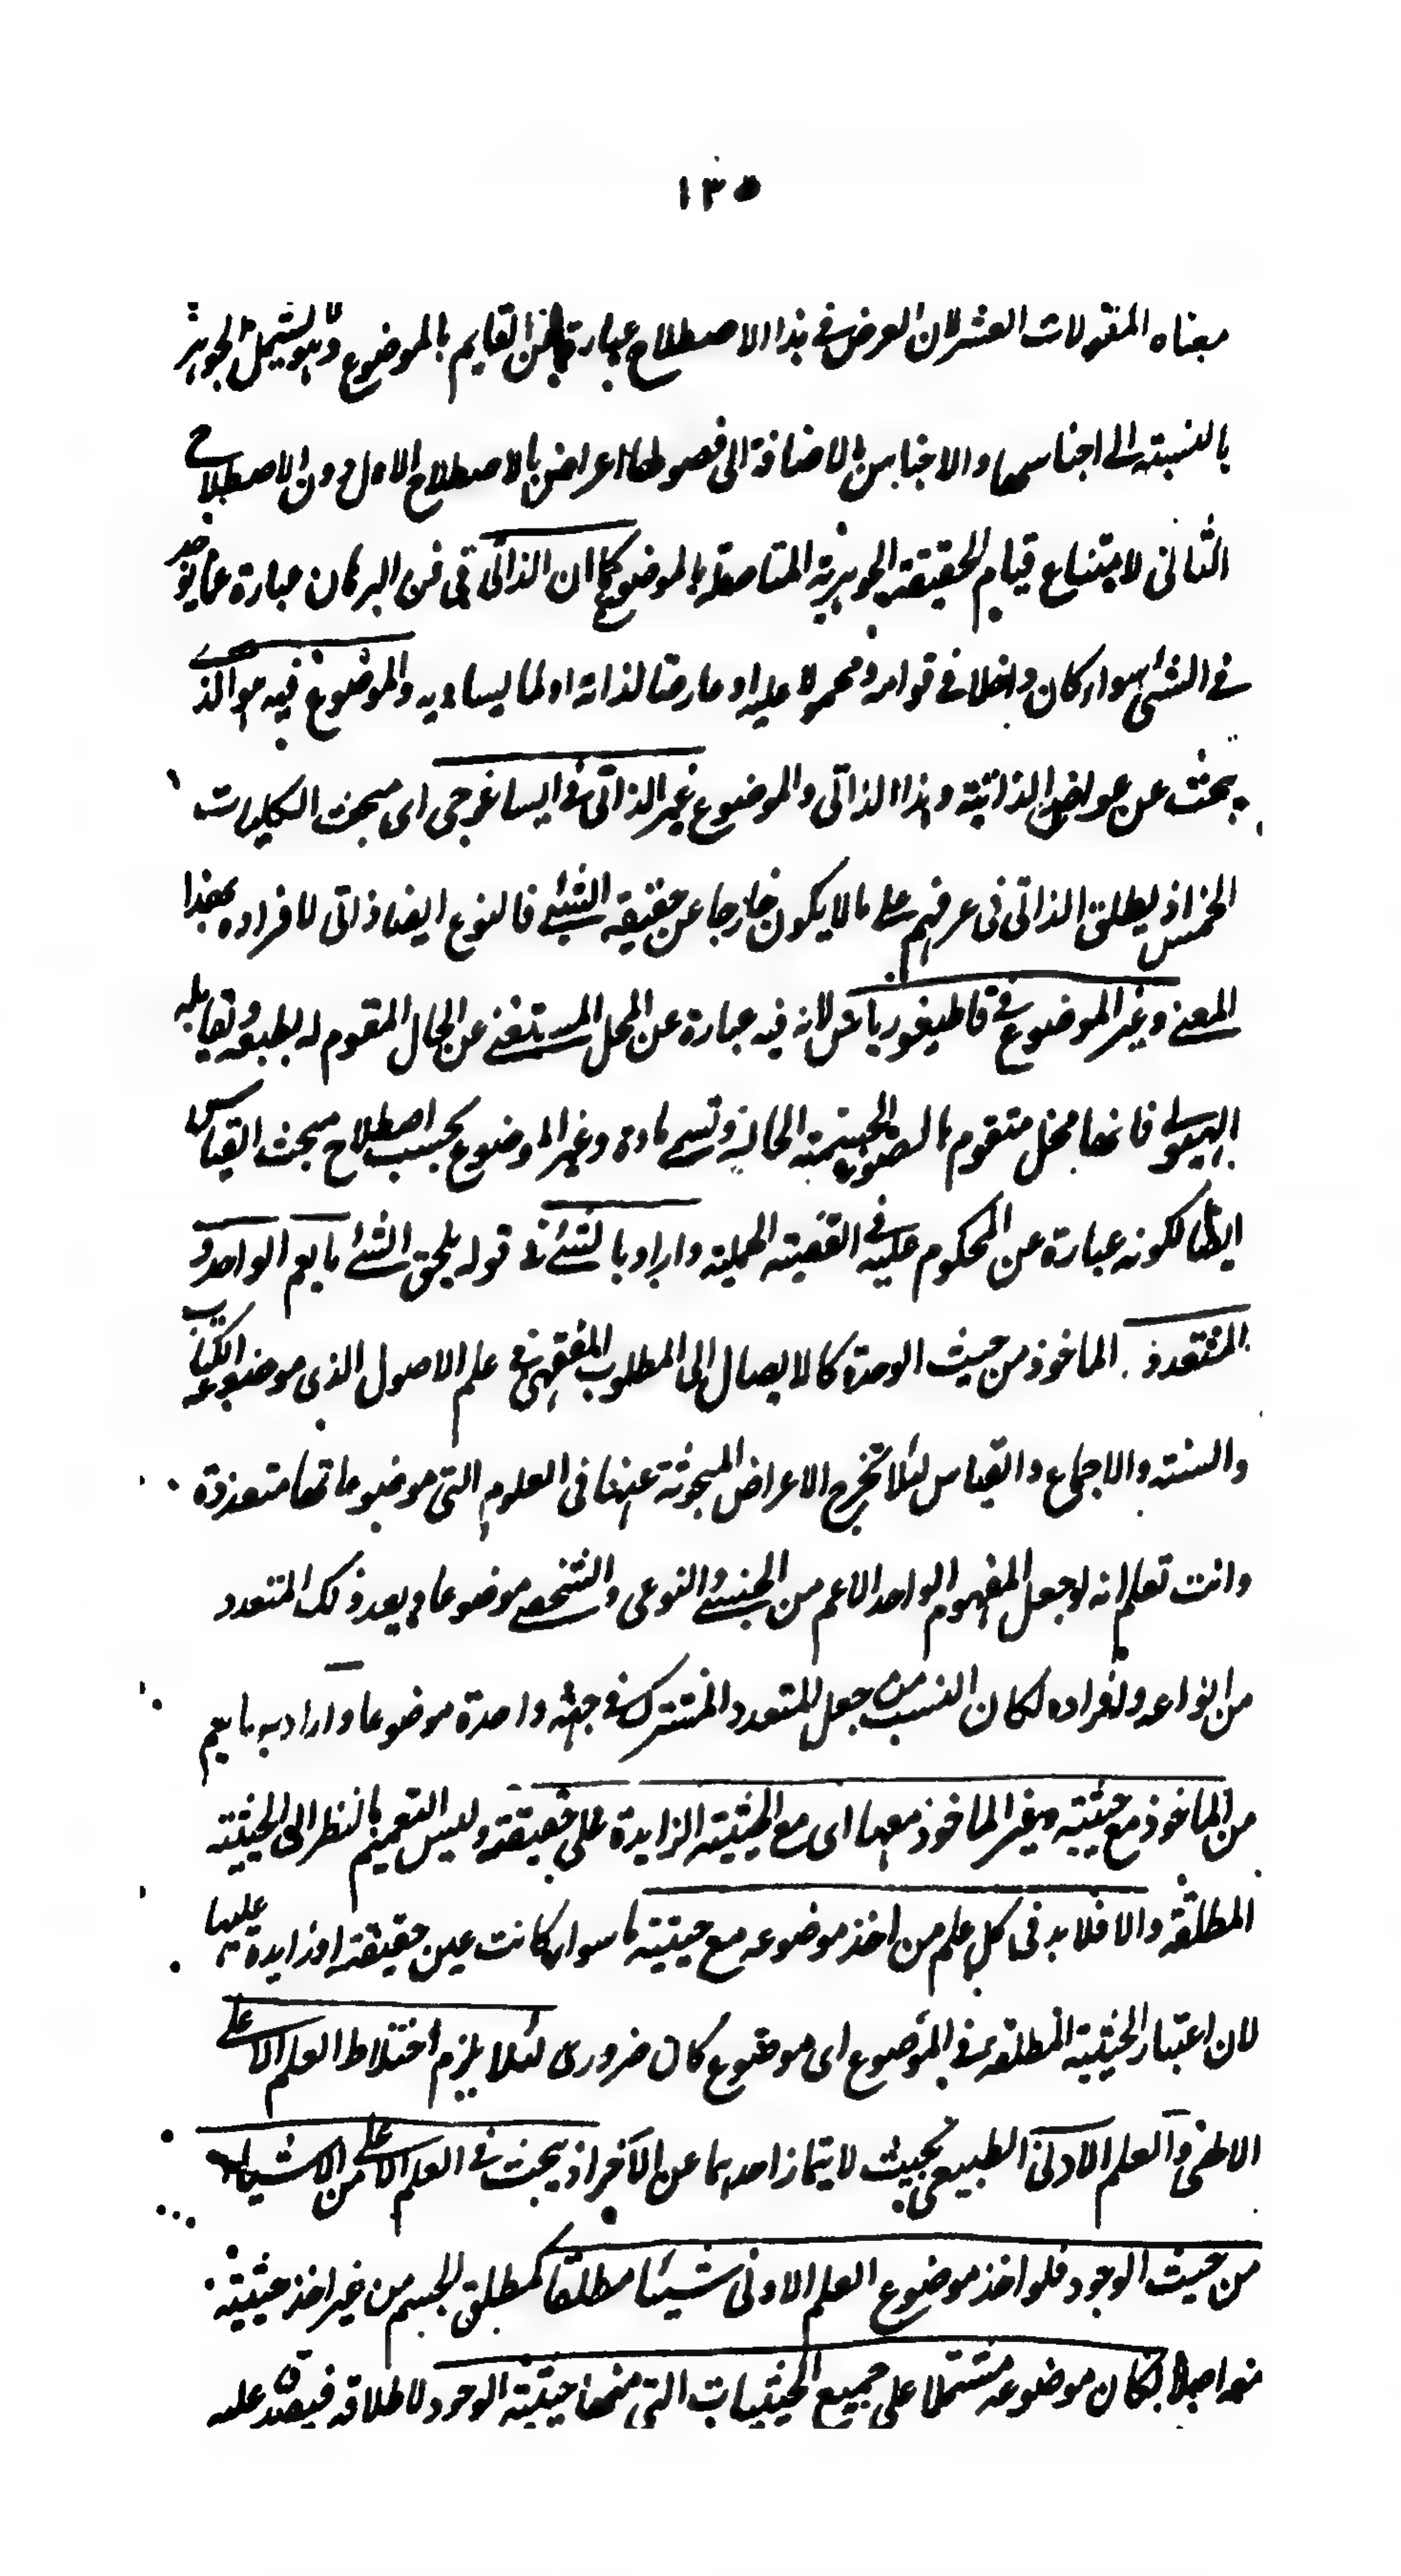 ١٣٥
معناه المقولات العشر لان العرض في هذا الاصطلاح عبارة عن القايم بالموضوع وهو يشمل الجوهر
بالنسبة الى اجناسها والاجناس بالاضافة الى فصولها اعراض بالاصطلاح الاول دون الاصطلاح
الثاني لامتناع قيام الحقيقة الجوهرية المتاصلة بالموضوع كما ان الذاتي في فن البرهان عبارة عما يؤخذ
في الشئ سواء كان داخلا في قوامه ومحمولا عليه او عارضا لذاته او لما يساويه والموضوع فيه هو الذي
يبحث عن عوارضه الذاتية وهذا الذاتي والموضوع غير الذاتي في ايساغوجي اى مبحث الكليات
الخمس اذ يطلق الذاتي في عرفهم على ما لا يكون خارجا عن حقيقة الشئ فالنوع ايضا ذاتي لافراده بهذا
المعنى وغير الموضوع في قاطيغورياس لانه فيه عبارة عن المحل المستغنى عن الحال المقوم له بطبعه ويقابله
الهيولى فانها محل متقوم بالصورة الجسمية الحالة وتسمى مادة وغير الموضوع بحسب اصطلاح مبحث القياس
ايضا لكونه عبارة عن المحكوم عليه في القضية الحملية واراد بالشئ في قوله يلحق الشئ ما يعم الواحد و
المتعدد الماخوذ من حيث الوحدة كالايصال الى المطلوب الفقهى في علم الاصول الذى موضوعه الكتاب
والسنة والاجماع والقياس لئلا تخرج الاعراض المبحوثة عنها في العلوم التى موضوعاتها متعددة
وانت تعلم انه لو جعل المفهوم الواحد الاعم من الجنسى والنوعى والشخصى موضوعا ويعد ذلك المتعدد
من انواعه وافراده لكان انسب من جعل المتعدد المشترك في جهة واحدة موضوعا واراد به ما يعم
من الماخوذ مع حيثية وغير الماخوذ معها اى مع الحيثية الزايدة على حقيقته وليس التعميم بالنظر الى الحيثية
المطلقة والا فلا بد فى كل علم من اخذ موضوعه مع حيثية ما سواء كانت عين حقيقته او زايدة عليها
لان اعتبار الحيثية المطلقة في الموضوع اى موضوع كان ضرورى لئلا يلزم اختلاط العلم الاعلى
الالهى والعلم الادنى الطبيعى بحيث لا يمتاز احدهما عن الآخر اذ يبحث في العلم الاعلى من الاشياء
من حيث الوجود فلو اخذ موضوع العلم الادنى شيئا مطلقا كمطلق الجسم من غير اخذ حيثية
معه اصلا لكان موضوعه مشتملا على جميع الحيثيات التى منها حيثية الوجود لاطلاقه فيصدق عليه